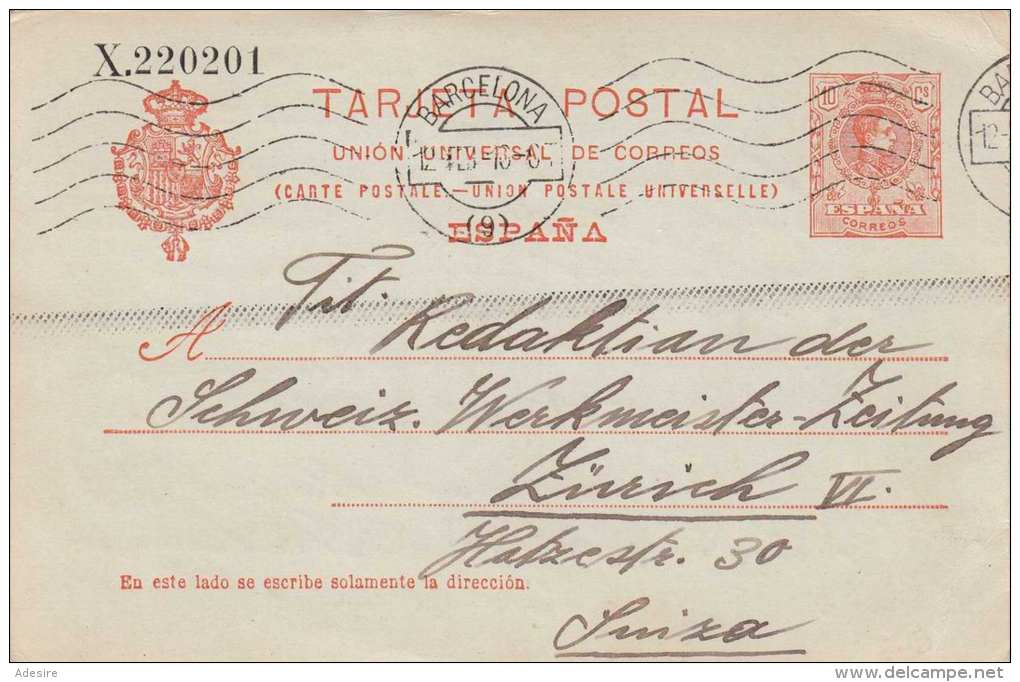 X.220201
TARJETA POSTAL
UNIÓN UNIVERSAL DE CORREOS
(CARTE POSTALE.—UNION POSTALE UNIVERSELLE)
ESPAÑA
BARCELONA
(9)
10 Cs
ESPAÑA
CORREOS
BA
12-
Tit.
A Redaktion der
Schweiz. Werkmeister-Zeitung
Zürich VI.
Hotzestr. 30
En este lado se escribe solamente la dirección.
Suiza
Adesire
www.delcampe.net